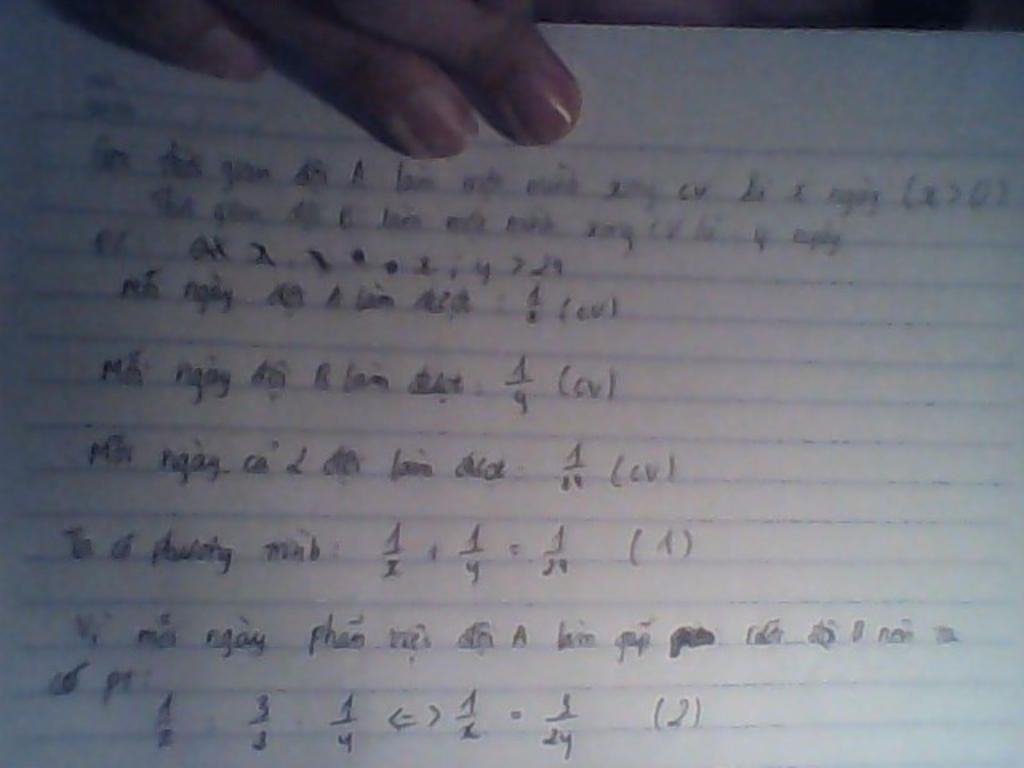 thời gian đội A làm một mình xong cv là x ngày (x > 0)
Thời gian đội B làm một mình xong cv là y ngày
x, y > 24
Mỗi ngày đội A làm được: (cv)
Mỗi ngày đội B làm được: 1/y (cv)
Mỗi ngày cả 2 đội làm được: 1/24 (cv)
Ta có phương trình: 1/x + 1/y = 1/24 (1)
Vì mỗi ngày phần việc đội A làm gấp đội B nên ta
có pt:
1/x 3/2 . 1/y <=> 1/x = 3/2y (2)